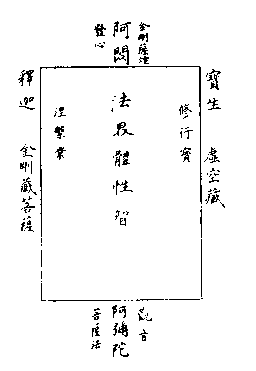 金剛薩埵
阿閦
發心
寶生 虛空藏
修行寶
法界體性智
涅槃業
釋迦 金剛藏菩薩
觀音
阿彌陀